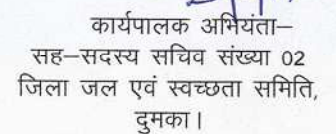 कार्यपालक अभियंता–
सह–सदस्य सचिव संख्या 02
जिला जल एवं स्वच्छता समिति,
दुमका।